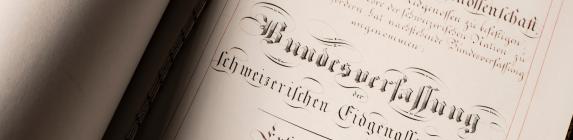 dgenossenschaft
Eidgenossen zu befestigen,
der schweizerischen Nation zu
fördern hat nachstehende Bundesverfassung
angenommen:
Bundesverfassung
der
schweizerischen Eidgenoss